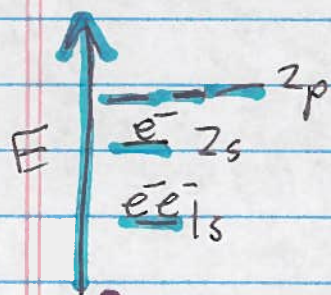 2p
E
e⁻ 2s
e⁻e⁻ 1s